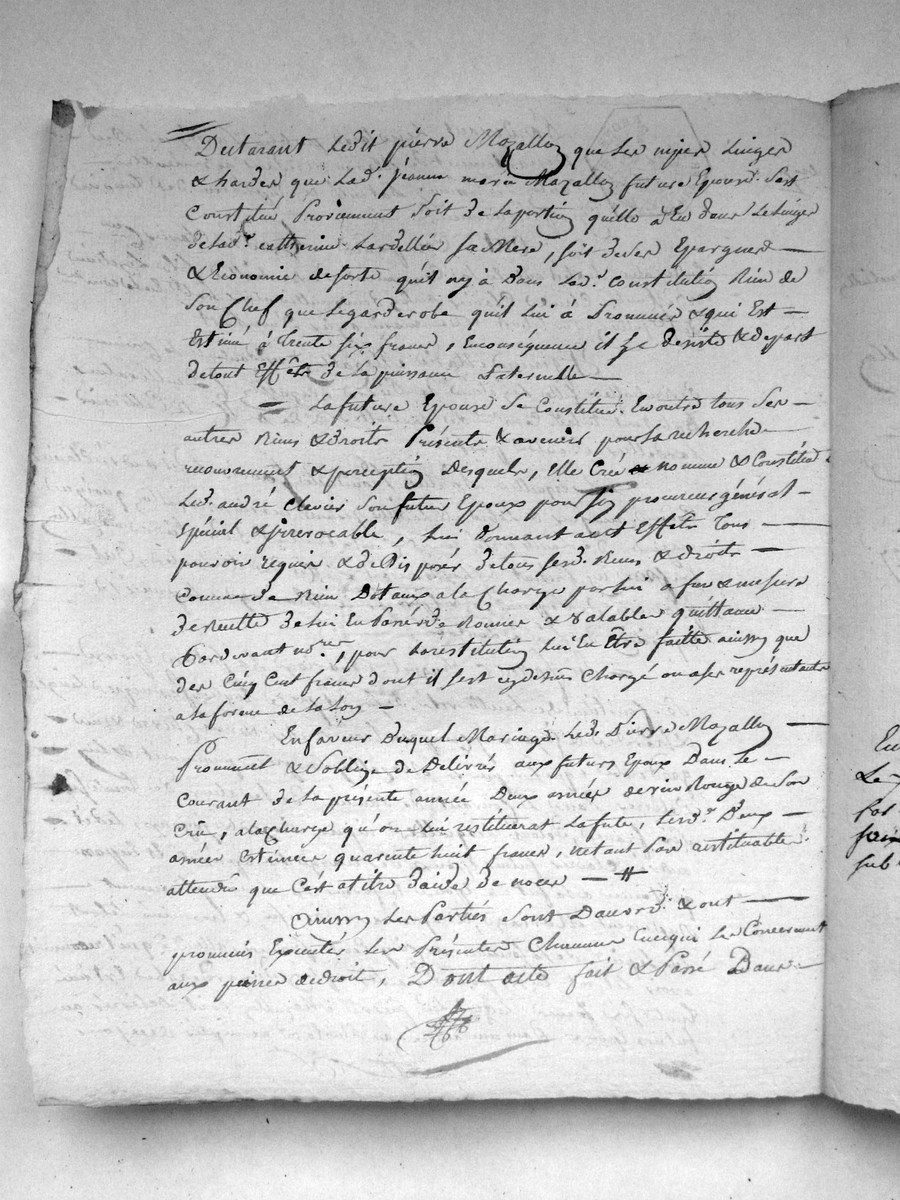 Declarant ledit pierre Mazallon que les nipes Linges
& hardes que Lad.e jeanne marie Mazallon future Epouse s'est
Constitué Proviennent soit de la portion qu'elle à Eu dans le Linge
de lad.e catherine Lardellier sa Mere, soit de ses Epargnes —
& Economie de sorte qu'il ny à Dans Lad.e Constitution Rien de
son Chef que le garderobe qu'il lui à Prommis & qui Est -
Estimé à trente six francs, En conséquence il se désiste & depart
de tout Effêts de la puissance Paternelle —
= La future Epouse se Constitue En outre tous ses —
autres Biens & droits Présents & avenirs pour la recherche —
recouvrement & perception Desquels, elle Crée nomme & Constitue
Led. andré Clavier son futur Epoux pour son procureur général -
spécial & irrevocable, lui donnant à cet Effêts tous —
pouvoir requis & de Disposer de tous sesd. Biens & droits —
Comme de Bien Dotaux à la Charge par lui a fur & mesure
de Recette de lui En Passer de Bonnes & valables quittance —
Pardevant no.re, pour la restitution lui En Être faitte ainssy que
des Cinq Cent francs dont il s'est cy dessus Chargé ou a ses représentants
a la forme de la Loy —
En faveur Duquel Mariage Led. Pierre Mazallon —
Prommet & s'oblige de Délivrer aux futurs Epoux Dans le —
Courant de la présente année Deux anées de vin Rouge de son
Crû, à la Charge qu'on Lui restituerat la fute, Lesd. Deux —
anées Estimées quarente huit francs, n'etant Pas restituables
attendu que C'est a titre d'aide de noces — #
Ainssy Les Parties sont D'accord & ont —
prommis Exécuter Les Présentes Chacune En ce qui Les Concernent
aux peines de droit, Dont acte fait & Passé Dans —
En
Le